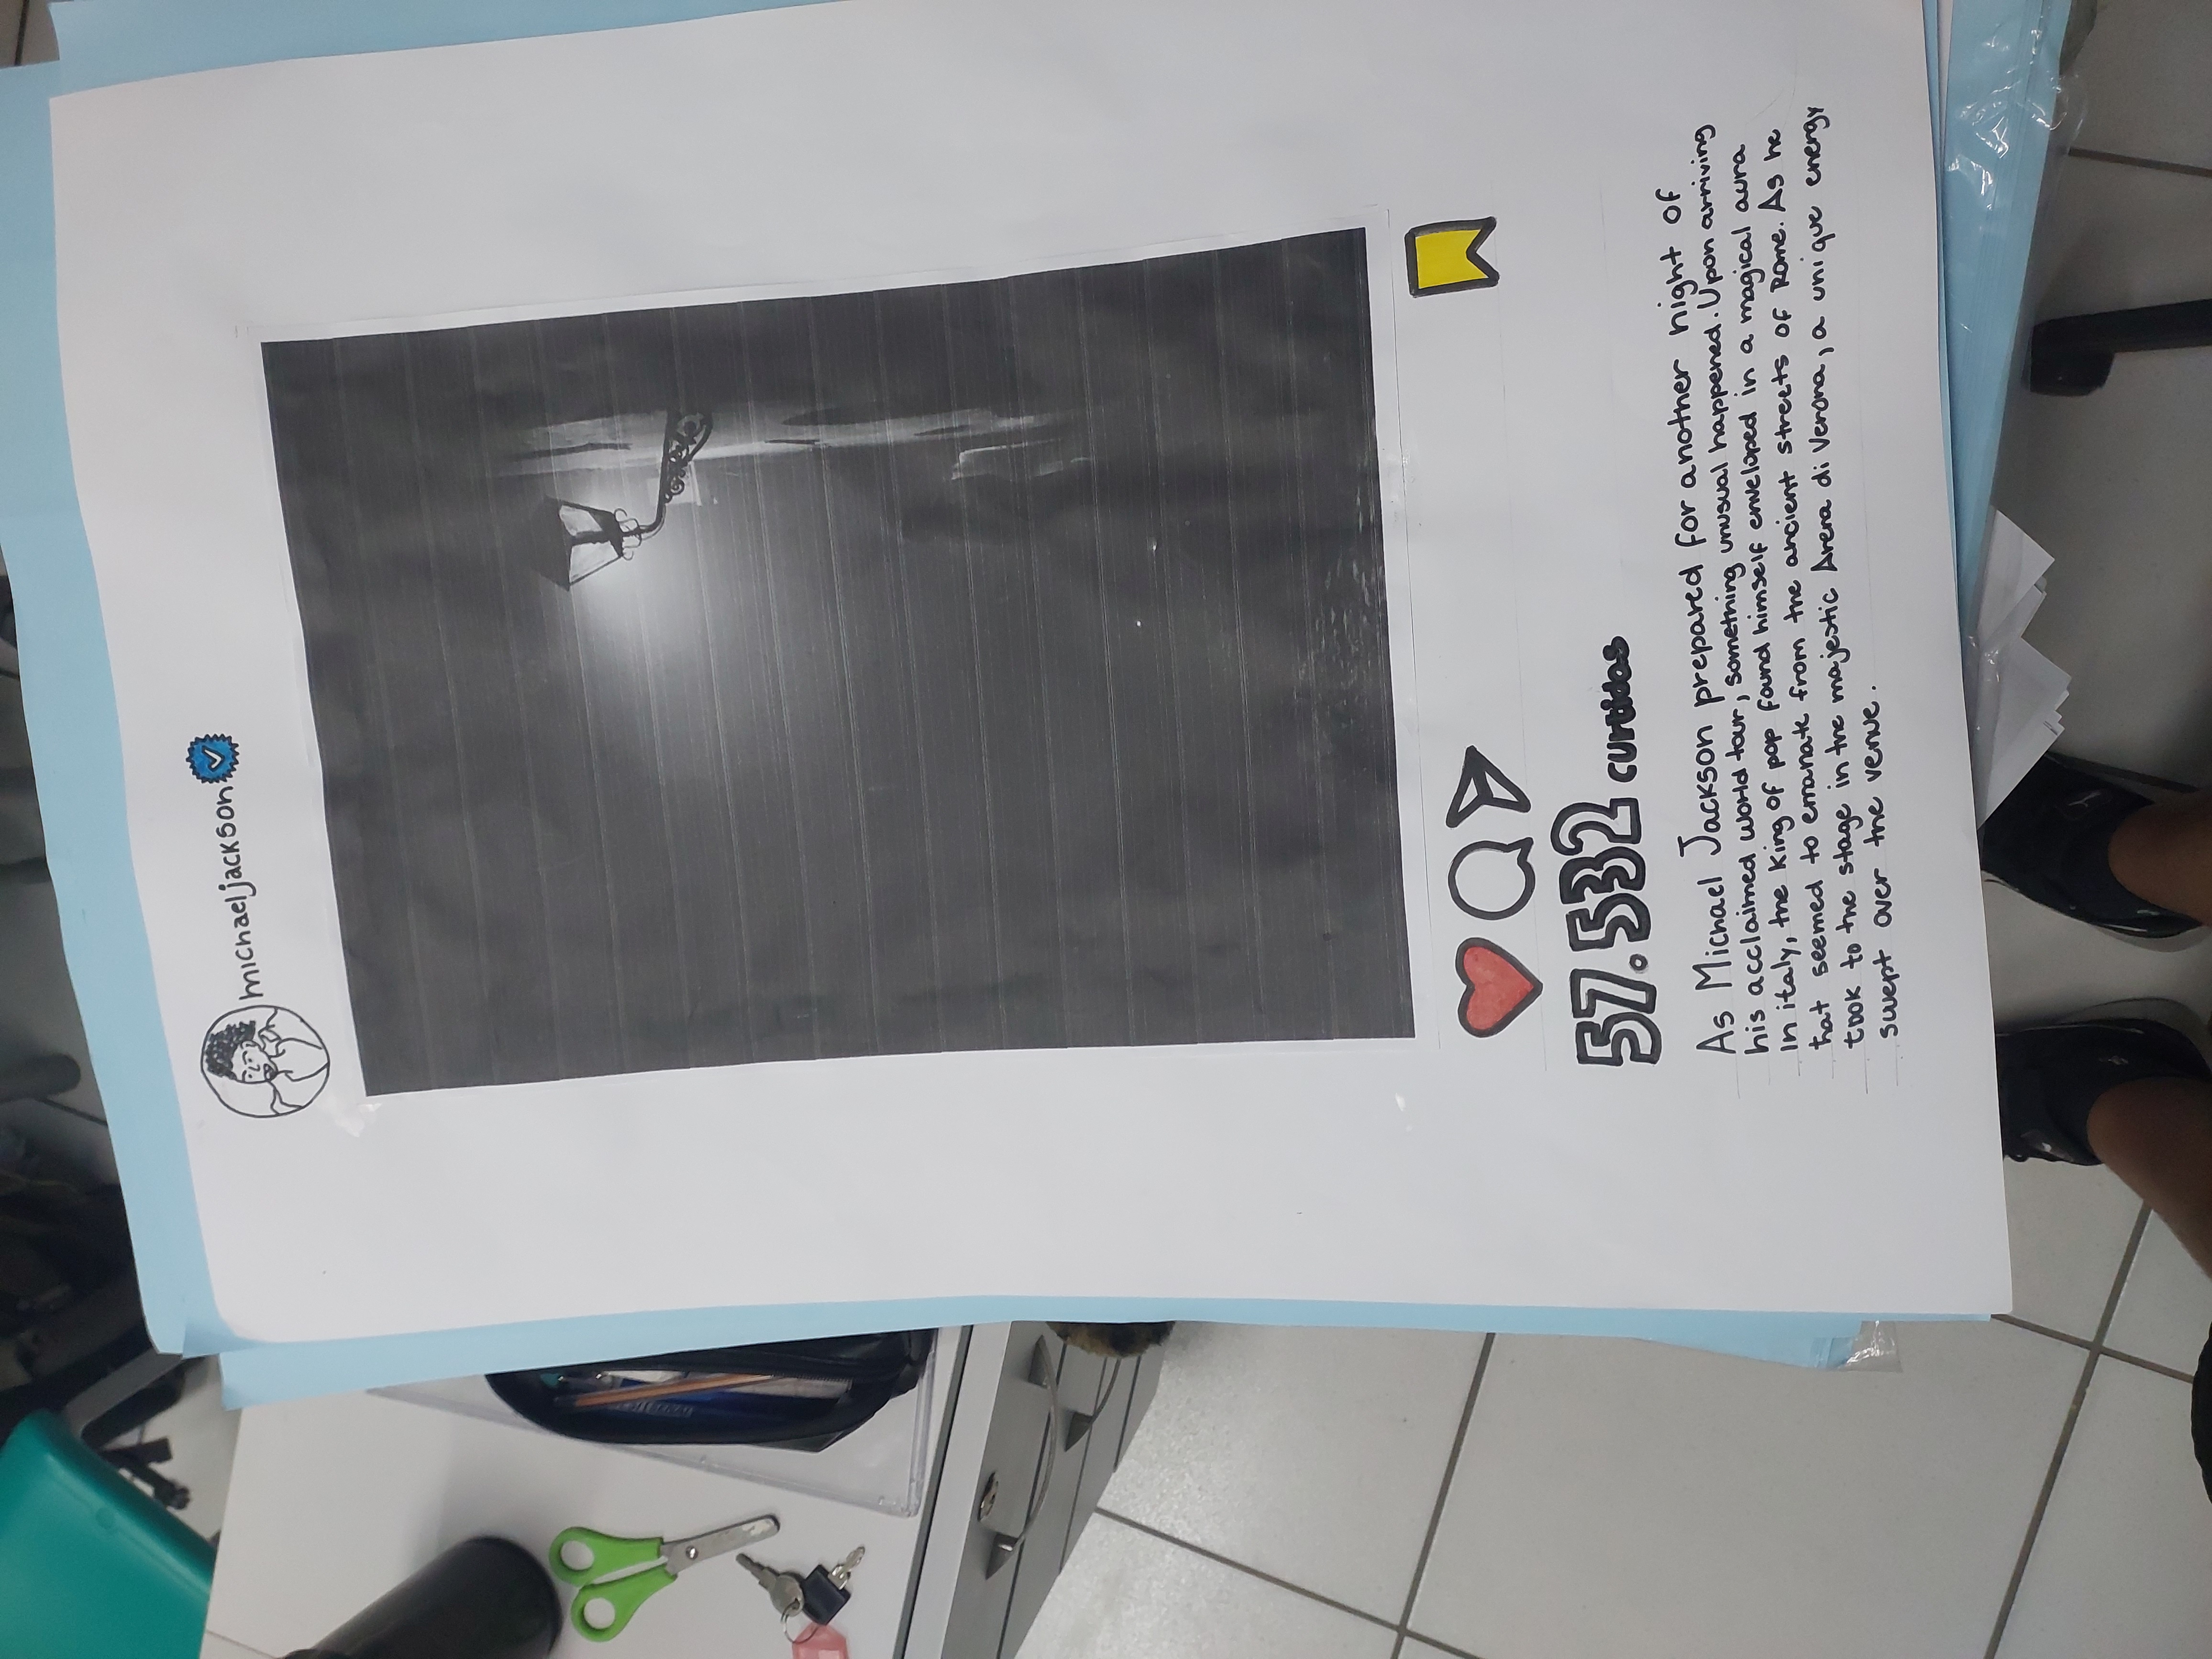 michaeljackson
57.532 curtidas
As Michael Jackson prepared for another night of
his acclaimed world tour, something unusual happened. Upon arriving
In italy, the King of pop found himself enveloped in a magical aura
that seemed to emanate from the ancient streets of Rome. As he
took to the stage in the majestic Arena di Verona, a unique energy
swept over the venue.